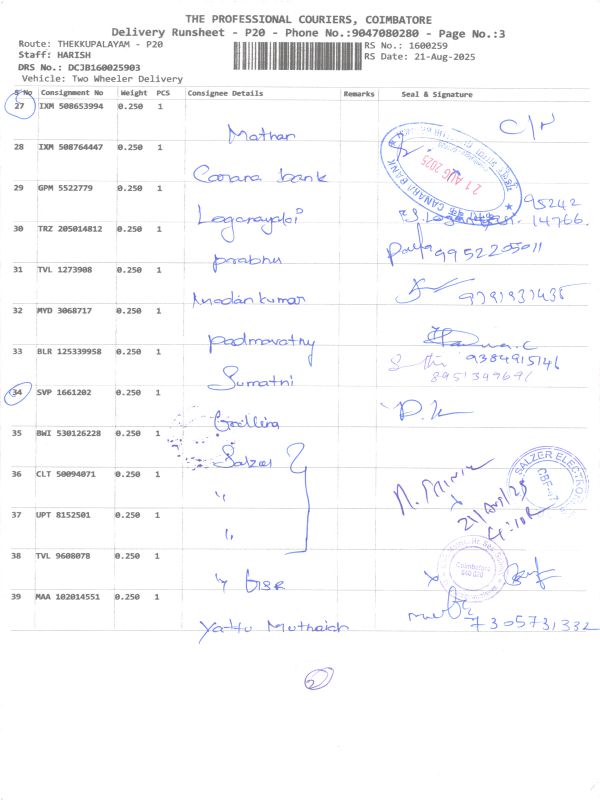 THE PROFESSIONAL COURIERS, COIMBATORE
Delivery Runsheet - P20 - Phone No.:9047080280 - Page No.:3
Route: THEKKUPALAYAM - P20
RS No.: 1600259
Staff: HARISH
RS Date: 21-Aug-2025
DRS No.: DCJB160025903
Vehicle: Two Wheeler Delivery
S No Consignment No Weight PCS Consignee Details Remarks Seal & Signature
27 IXM 508653994 0.250 1
Mathan C/N
28 IXM 508764447 0.250 1
Canara bank
CANARA BANK
21 AUG 2025
29 GPM 5522779 0.250 1
95242
Loganayaki 14766.
30 TRZ 205014812 0.250 1
Prabhu 9952205011
31 TVL 1273908 0.250 1
Madan kumar
32 MYD 3068717 0.250 1
Padmavathy
33 BLR 125339958 0.250 1
9384915146
Sumathi
34 SVP 1661202 0.250 1
35 BWI 530126228 0.250 1
Salzer
SALZER ELECTRONICS
36 CLT 50094071 0.250 1
"
37 UPT 8152501 0.250 1
"
38 TVL 9608078 0.250 1
Coimbatore
GSR
39 MAA 102014551 0.250 1
Muthaiah 7305731332
2